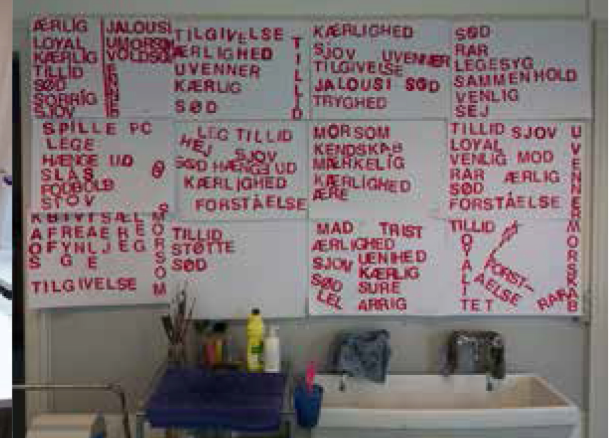 ÆRLIG
LOYAL
KÆRLIG
TILLID
SØD
SORRIG
SJOV
JALOUSI
UMORSOM
VOLDSOM
TILGIVELSE
ÆRLIGHED
UVENNER
KÆRLIG
SØD
TILLID
KÆRLIGHED
SJOV UVENNER
TILGIVELSE
JALOUSI SØD
TRYGHED
SØD
RAR
LEGESYG
SAMMENHOLD
VENLIG
SEJ
SPILLE PC
LEGE
HÆNGE UD
SLÅS
FODBOLD
LEG TILLID
HEJ SJOV
SØD HÆNGE UD
KÆRLIGHED
FORSTÅELSE
MORSOM
KENDSKAB
MÆRKELIG
KÆRLIGHED
ÆRE
TILLID SJOV
LOYAL
VENLIG MOD
RAR ÆRLIG
SØD
FORSTÅELSE
UVENNER
MORSOM
TILGIVELSE
TILLID
STØTTE
SØD
MAD TRIST
ÆRLIGHED
SJOV UENIHED
KÆRLIG
SØD SURE
LEL ARRIG
TILLID
LOYALITET
FORST-
AELSE
RARAB